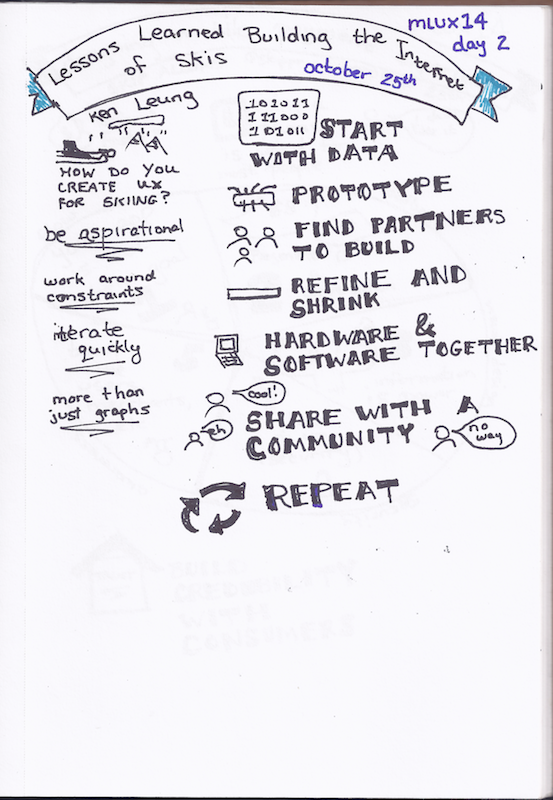 mLUX14
day 2
Lessons Learned Building the Internet
of Skis
october 25th
Ken Leung
HOW DO YOU
CREATE UX
FOR SKIING?
be aspirational
work around
constraints
iterate
quickly
more than
just graphs
101011
111000
101011
START
WITH DATA
PROTOTYPE
FIND PARTNERS
TO BUILD
REFINE AND
SHRINK
HARDWARE &
SOFTWARE TOGETHER
cool!
eh
SHARE WITH A
COMMUNITY
no
way
REPEAT